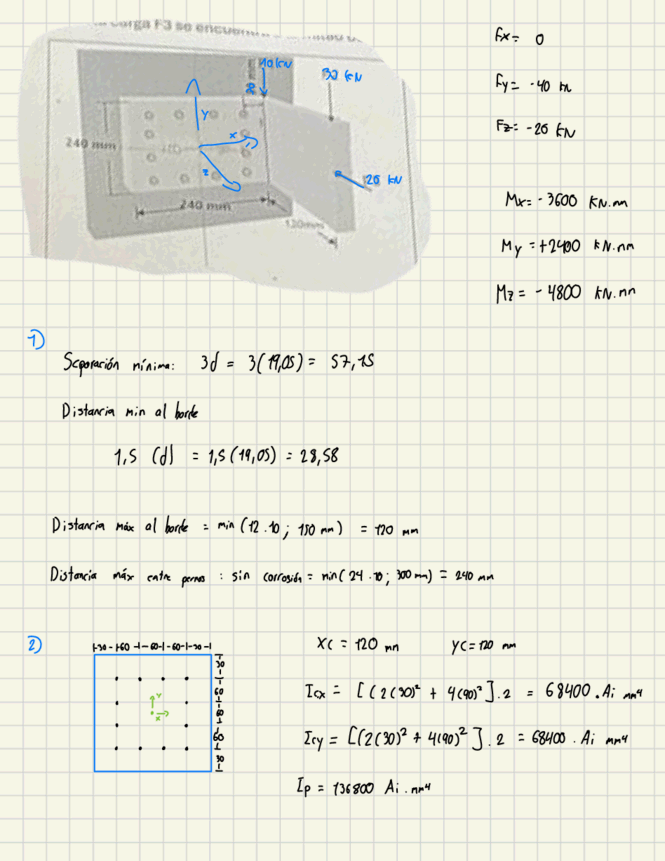 carga F3 se encuentra
10 kN
30 kN
240 mm
Y
X
Z
26 kN
240 mm
120mm
Fx = 0
Fy = -40 kN
Fz = -26 kN
Mx = -3600 kN.mm
My = +2400 kN.mm
Mz = -4800 kN.mm
1)
Separación mínima: 3d = 3(19,05) = 57,15
Distancia min al borde
1,5 (d) = 1,5(19,05) = 28,58
Distancia máx al borde = min(12.10; 150 mm) = 120 mm
Distancia máx entre pernos : sin corrosión = min(24.10; 300 mm) = 240 mm
2)
|-30-|-60-|-60-|-60-|-30-|
30
60
60
60
30
Y
X
Xc = 120 mm Yc = 120 mm
Icx = [(2(30)² + 4(90)²].2 = 68400.Ai mm⁴
Icy = [(2(30)² + 4(90)²].2 = 68400.Ai mm⁴
Ip = 136800 Ai.mm⁴